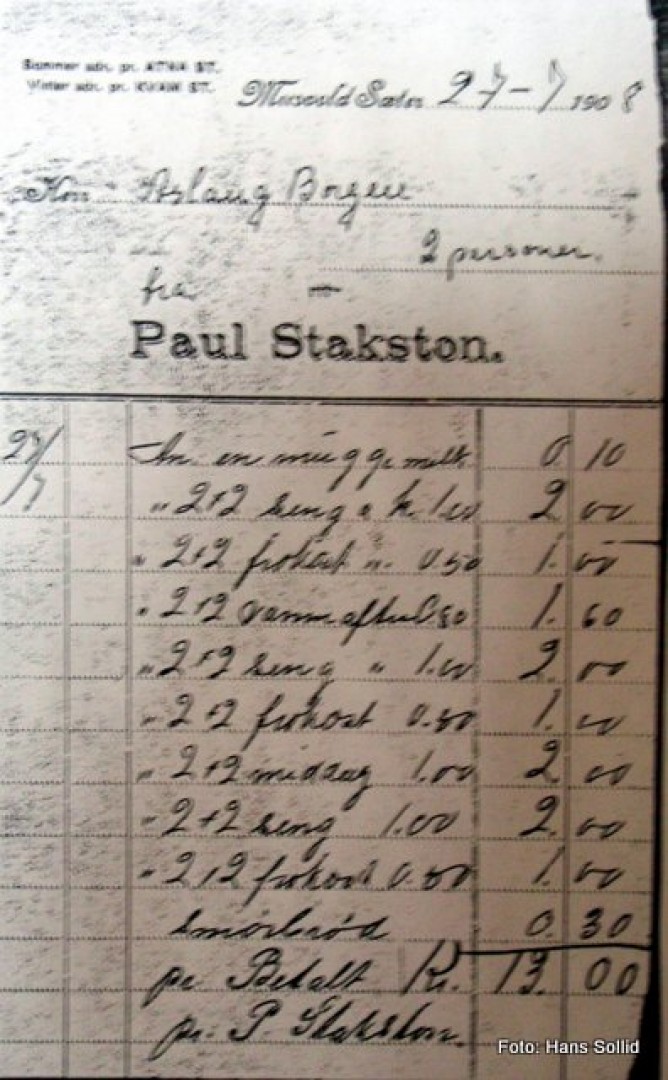 Sommer adr. pr. ATNA ST.
Vinter adr. pr. KVAM ST.
Musvold Sæter 27-7 1908
Aslaug Borgen
2 personer.
fra
Paul Stakston.
27/7 An en mugge melk 0. 10
" 2+2 seng a k. 1.00 2 00
" 2+2 frokost " 0.50 1. 00
" 2+2 varm aften 0.80 1. 60
" 2+2 seng " 1.00 2 00
" 2+2 frokost 0.50 1. 00
" 2+2 middag 1.00 2. 00
" 2+2 seng 1.00 2. 00
" 2+2 frokost 0.50 1. 00
smørbrød 0. 30
pr Betalt Kr. 13. 00
pr. P. Stakston.
Foto: Hans Sollid